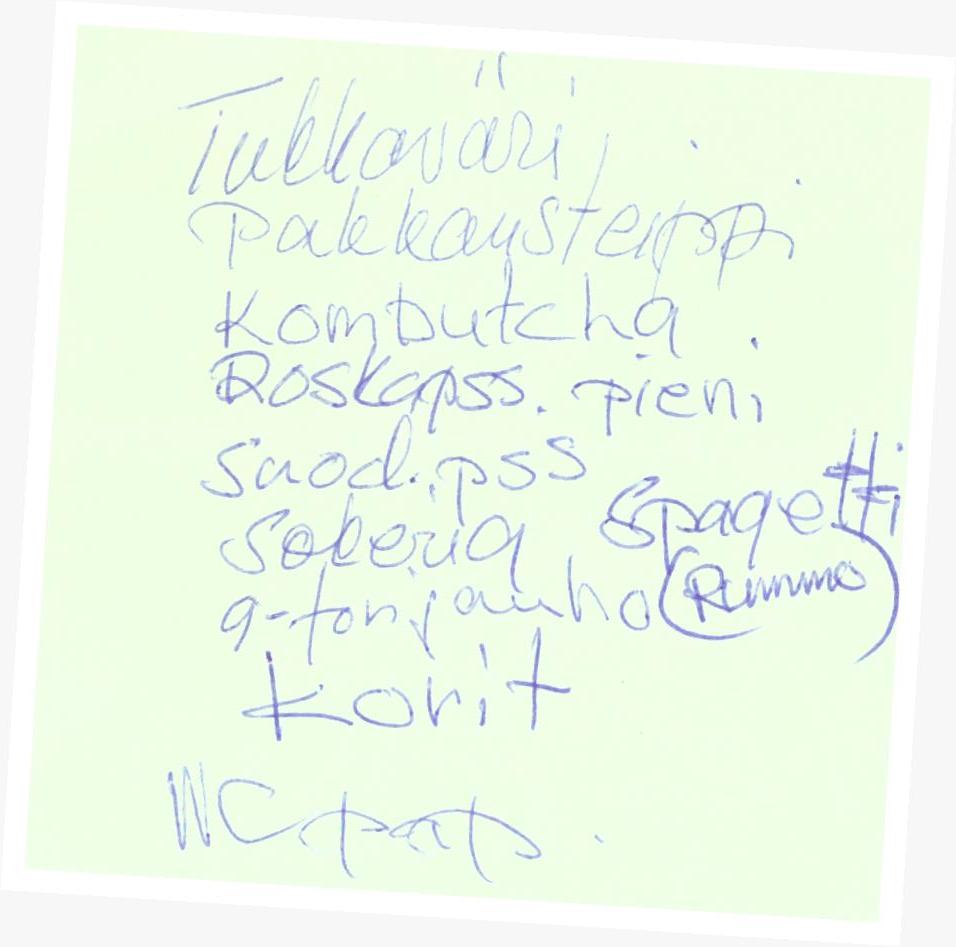 Tukkaväri,
pakkausteippi
Kombutcha
Roskapss. pieni
Suod.pss
Sokeria Spagetti
a-tonjauho (Rummo)
Korit
WC pap.